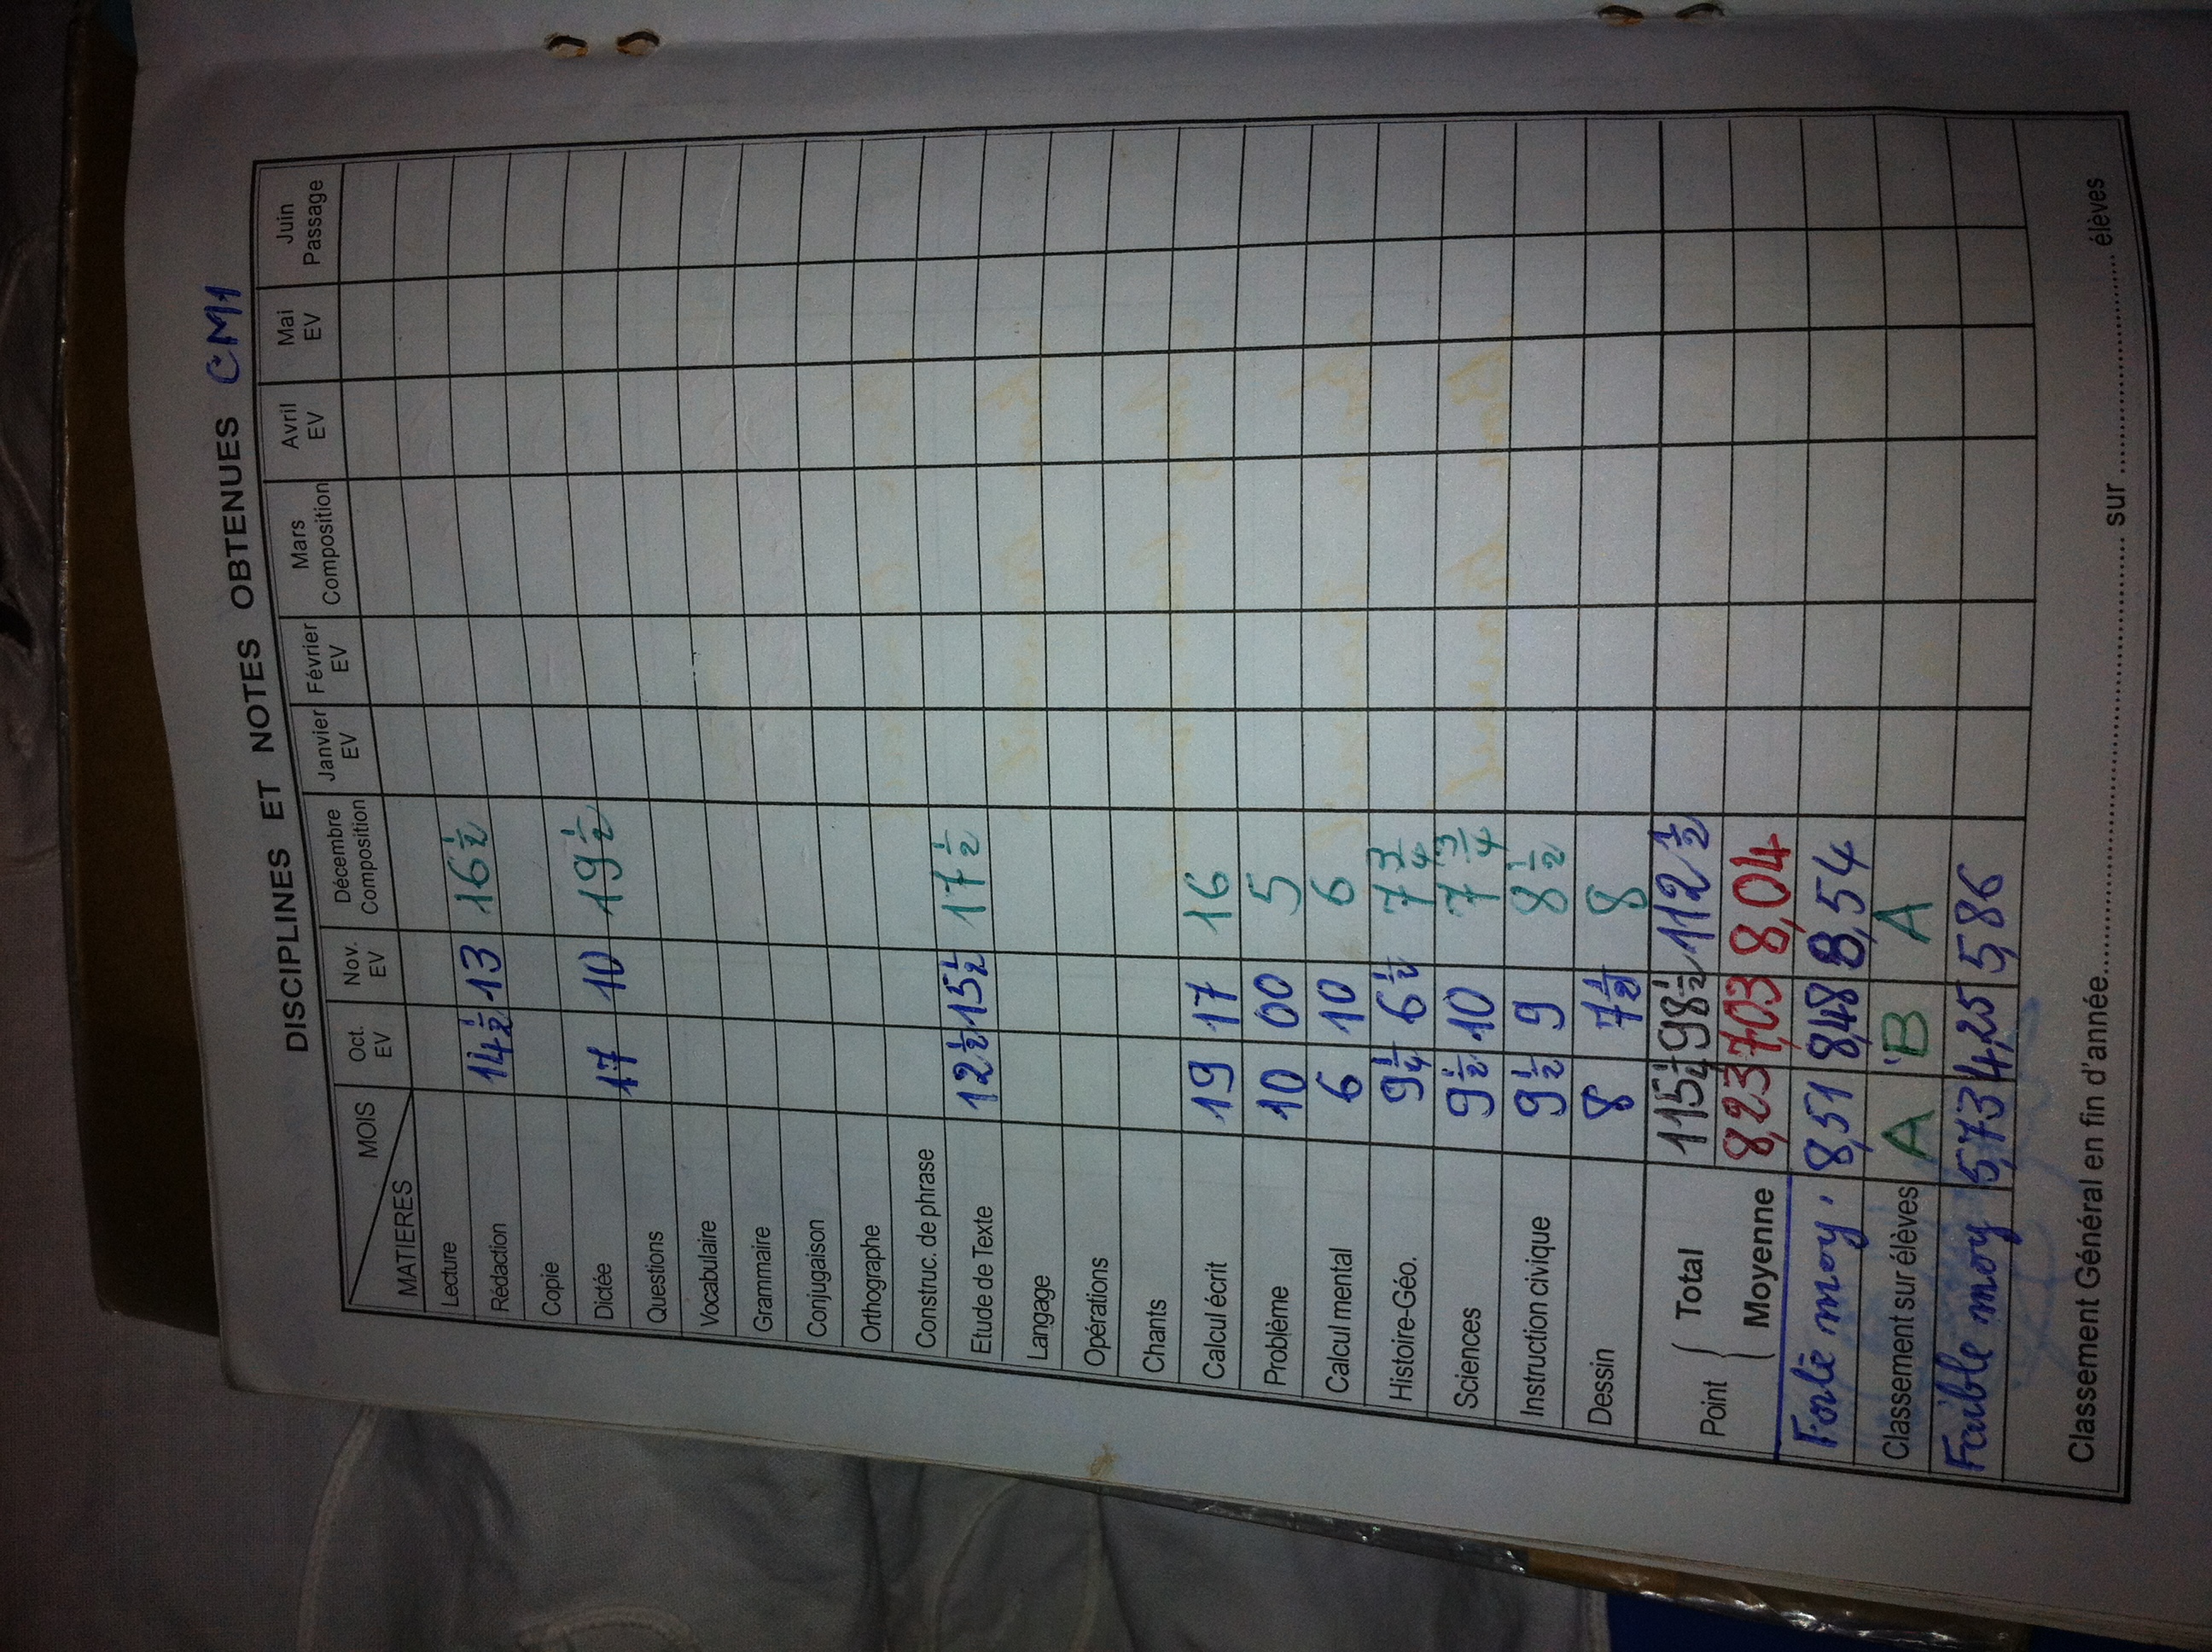 DISCIPLINES ET NOTES OBTENUES CM1
MOIS MATIERES Oct. EV Nov. EV Décembre Composition Janvier EV Février EV Mars Composition Avril EV Mai EV Juin Passage
Lecture
Rédaction 14 1/2 13 16 1/2
Copie
Dictée 17 10 19 1/2
Questions
Vocabulaire
Grammaire
Conjugaison
Orthographe
Construc. de phrase
Etude de Texte 12 1/2 15 1/2 17 1/2
Langage
Opérations
Chants
Calcul écrit 19 17 16
Problème 10 00 5
Calcul mental 6 10 6
Histoire-Géo. 9 1/4 6 1/2 7 3/4
Sciences 9 1/2 10 7 3/4
Instruction civique 9 1/2 9 8 1/2
Dessin 8 7 1/2 8
Point Total 115 1/4 98 1/2 112 1/2
Moyenne 8,23 7,03 8,04
Forte moy. 8,51 8,48 8,54
Classement sur élèves A B A
Faible moy 5,73 4,25 5,86
Classement Général en fin d'année.......... sur .......... élèves